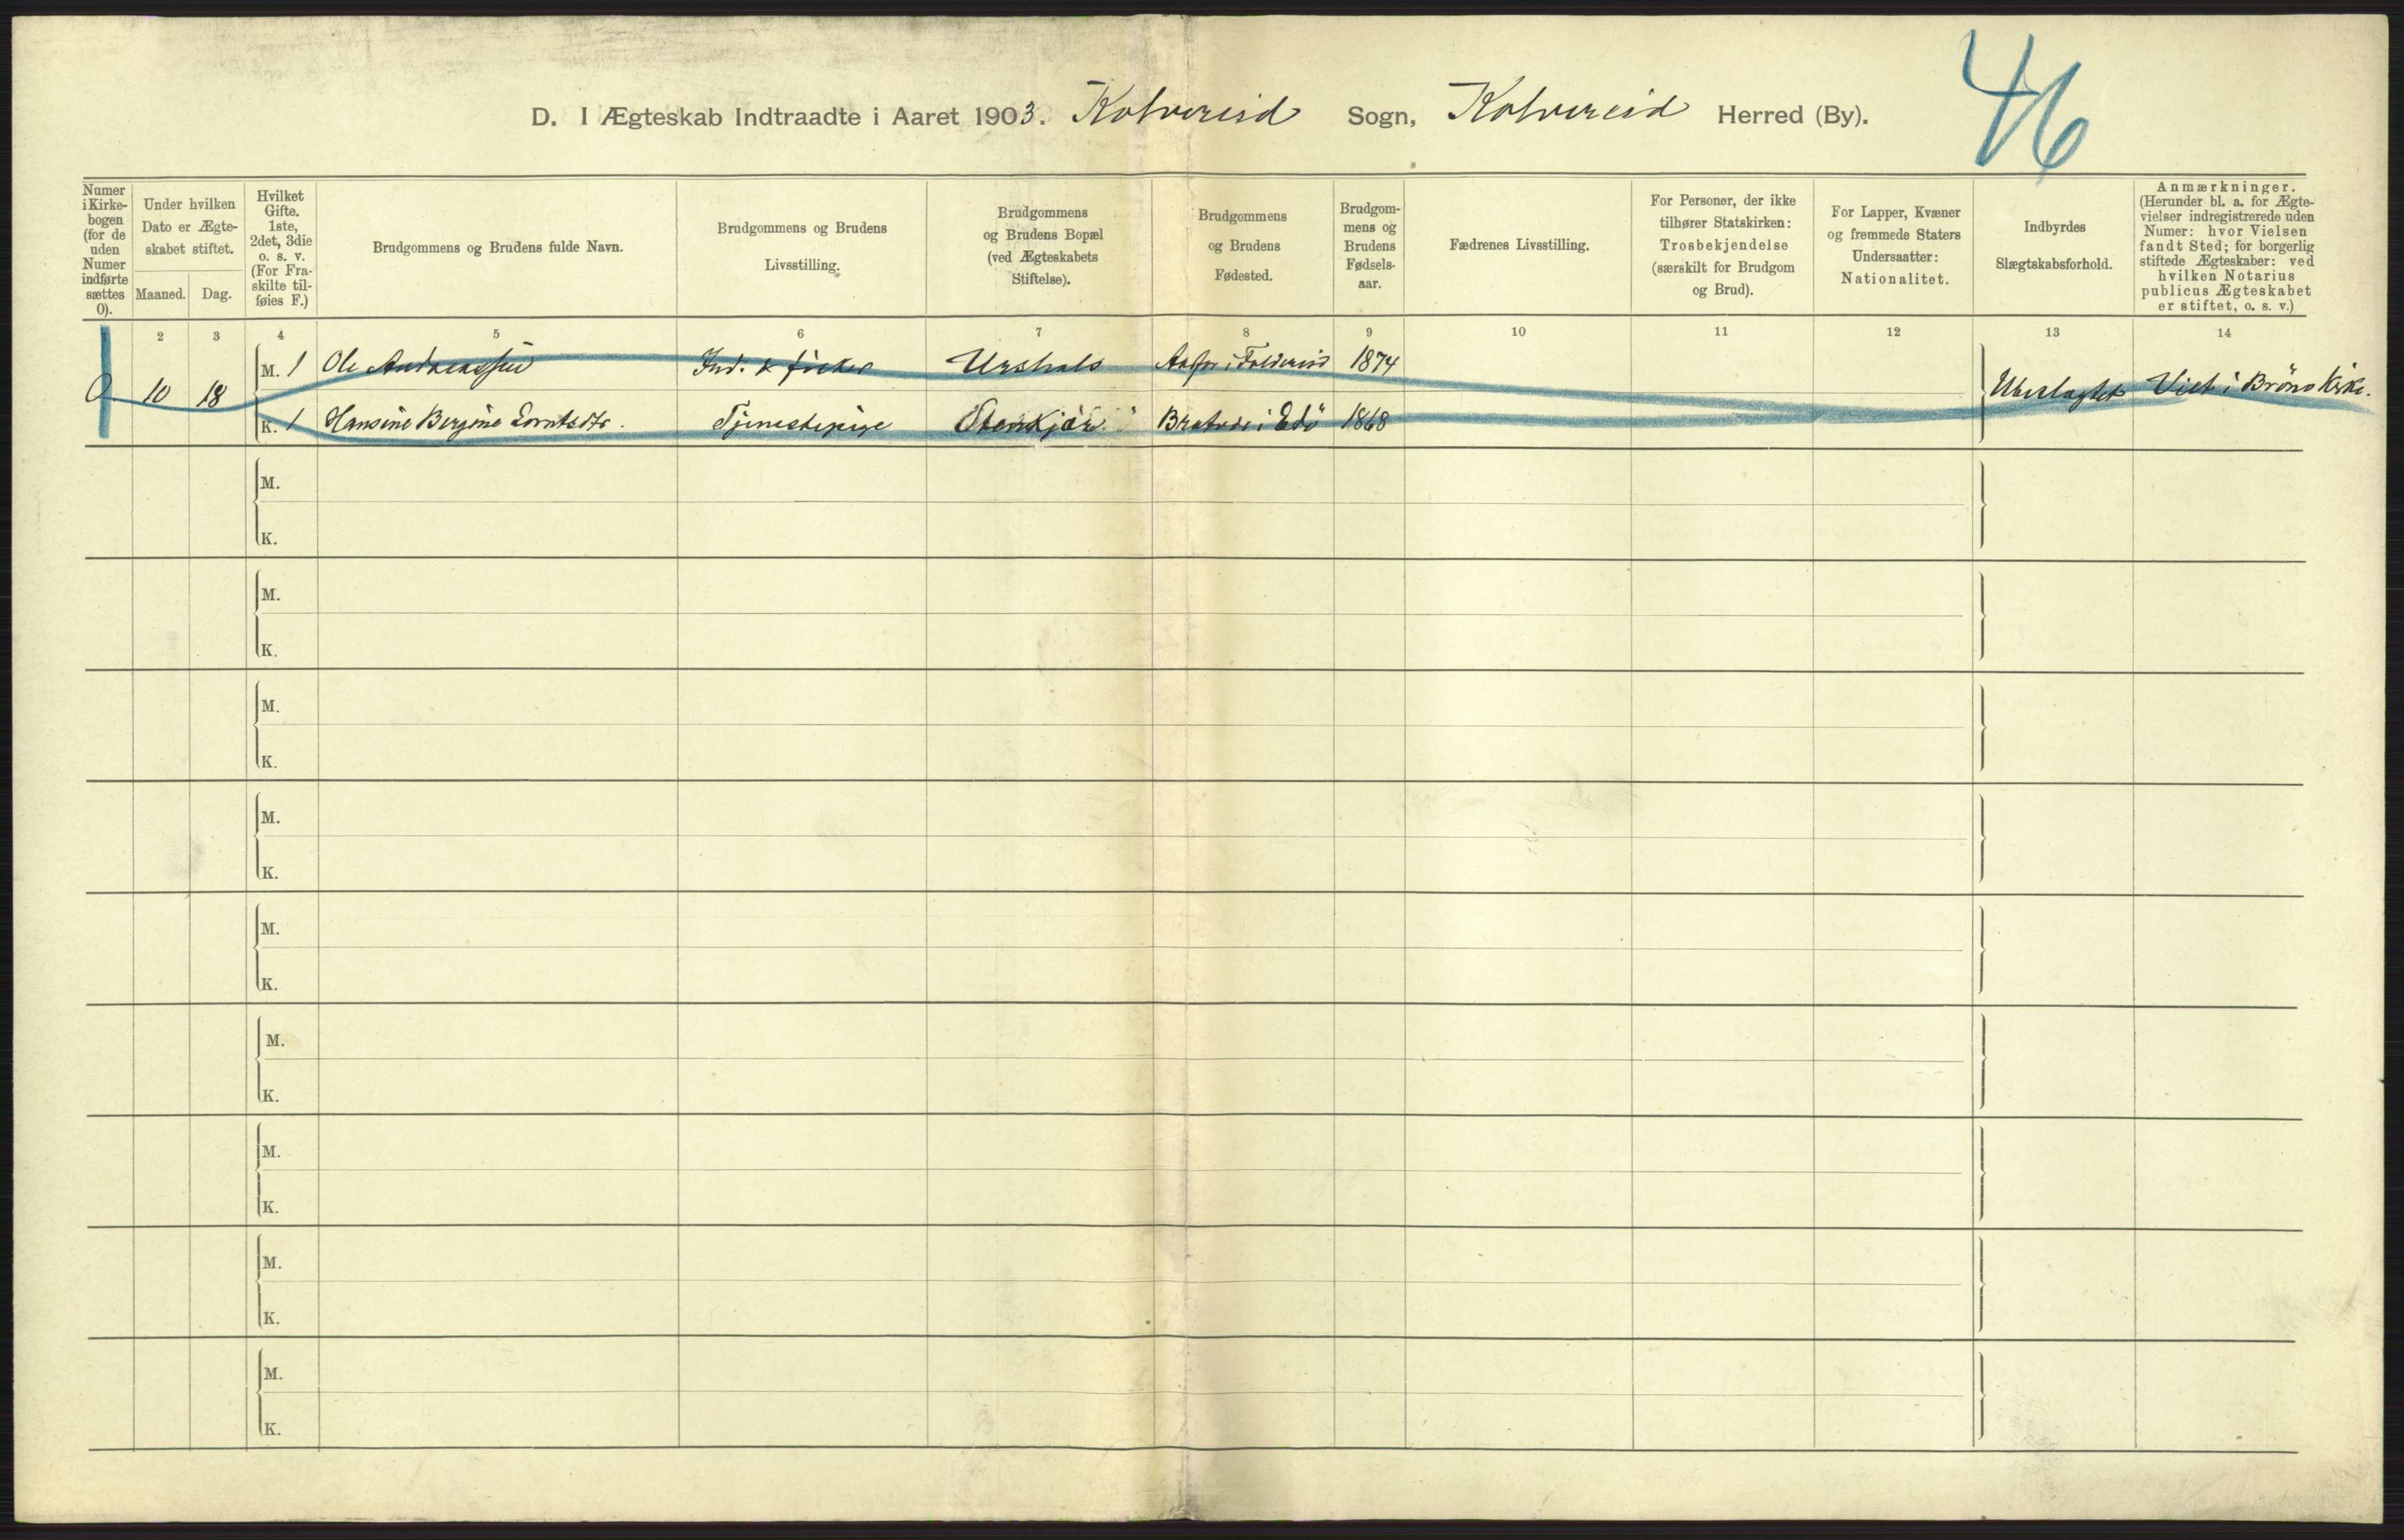 46
D. I Ægteskab Indtraadte i Aaret 1903. Kolvereid Sogn, Kolvereid Herred (By).
Numer i Kirke-bogen (for de uden Numer indførte sættes 0).
Under hvilken Dato er Ægte-skabet stiftet.
Maaned. Dag.
Hvilket Gifte. 1ste, 2det, 3die o. s. v. (For Fra-skilte til-føies F.)
Brudgommens og Brudens fulde Navn.
Brudgommens og Brudens Livsstilling.
Brudgommens og Brudens Bopæl (ved Ægteskabets Stiftelse).
Brudgommens og Brudens Fødested.
Brudgom-mens og Brudens Fødsels-aar.
Fædrenes Livsstilling.
For Personer, der ikke tilhører Statskirken: Trosbekjendelse (særskilt for Brudgom og Brud).
For Lapper, Kvæner og fremmede Staters Undersaatter: Nationalitet.
Indbyrdes Slægtskabsforhold.
Anmærkninger. (Herunder bl. a. for Ægte-vielser indregistrerede uden Numer: hvor Vielsen fandt Sted; for borgerlig stiftede Ægteskaber: ved hvilken Notarius publicus Ægteskabet er stiftet, o. s. v.)
1 2 3 4 5 6 7 8 9 10 11 12 13 14
0 10 18
M. 1 Ole Andreassen Ind. & fisker i Foldereid 1874
K. 1 Hansine Bergine Tjenestepige Stenkjær i Edö 1868
Ubeslægtet Viet i Brönö Kirke.
M.
K.
M.
K.
M.
K.
M.
K.
M.
K.
M.
K.
M.
K.
M.
K.
M.
K.